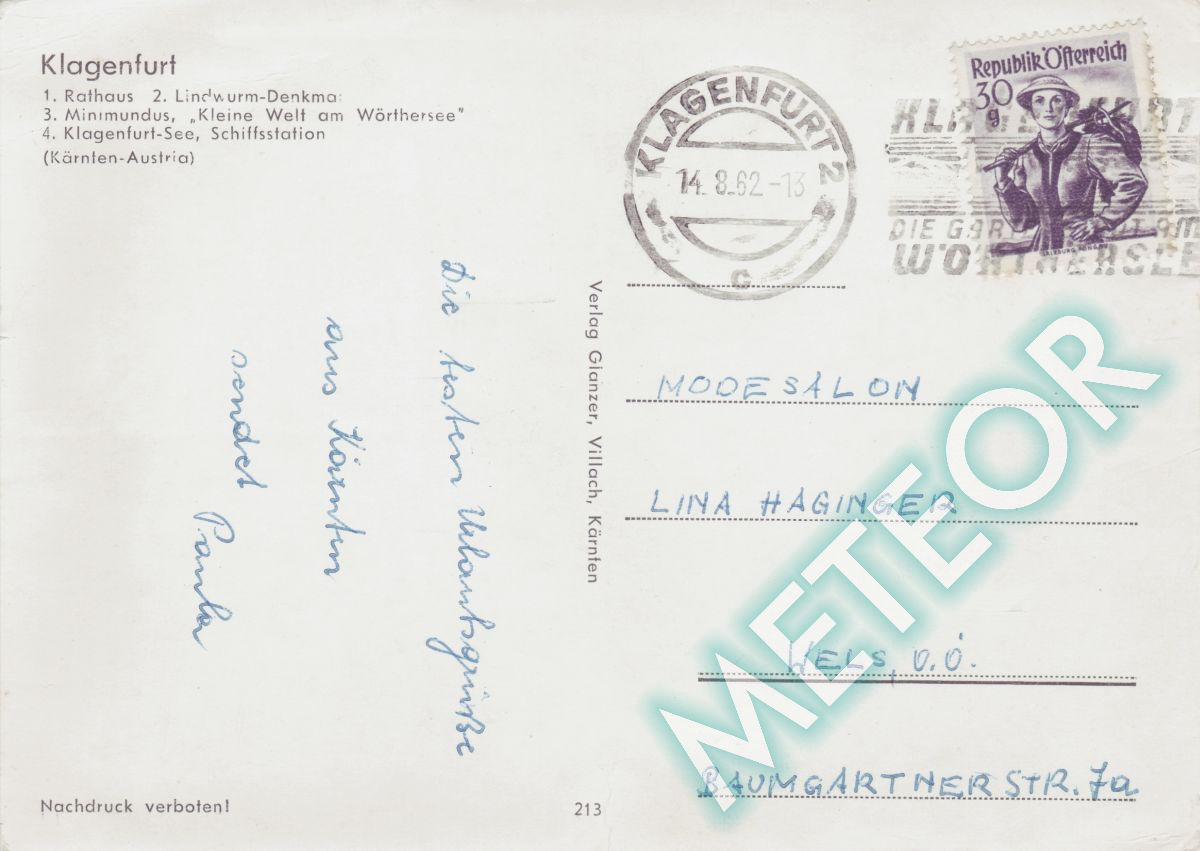 Klagenfurt
1. Rathaus 2. Lindwurm-Denkmal
3. Minimundus, „Kleine Welt am Wörthersee"
4. Klagenfurt-See, Schiffsstation
(Kärnten-Austria)
Die besten Urlaubsgrüße
aus Kärnten
sendet
Paula
Nachdruck verboten!
Verlag Glanzer, Villach, Kärnten
213
KLAGENFURT 2
14.8.62-13
G
Republik Österreich
30
g
DIE
AM
WÖRTHERSEE
MODESALON
LINA HAGINGER
WELS, O.Ö.
BAUMGARTNERSTR. 7a
METEOR